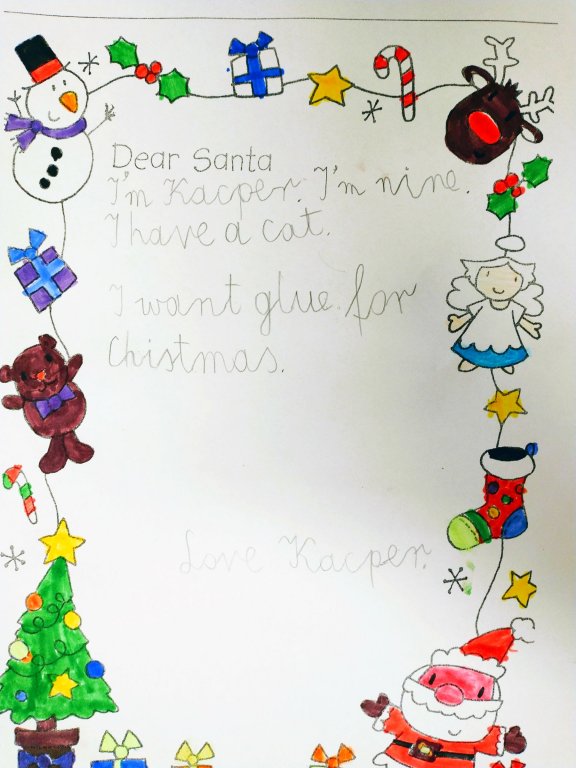 Dear Santa
I'm Kacper. I'm nine.
I have a cat.
I want glue for
Chistmas.
Love Kacper.